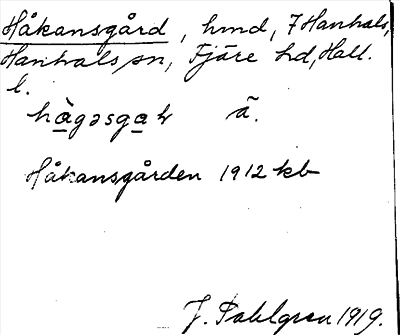 Håkansgård, hmd, 7 Hanhals,
Hanhals sn, Fjäre hd, Hall.
l.
hàgəsgaɫ ã.
Håkansgården 1912 kb
J. Sahlgren 1919.